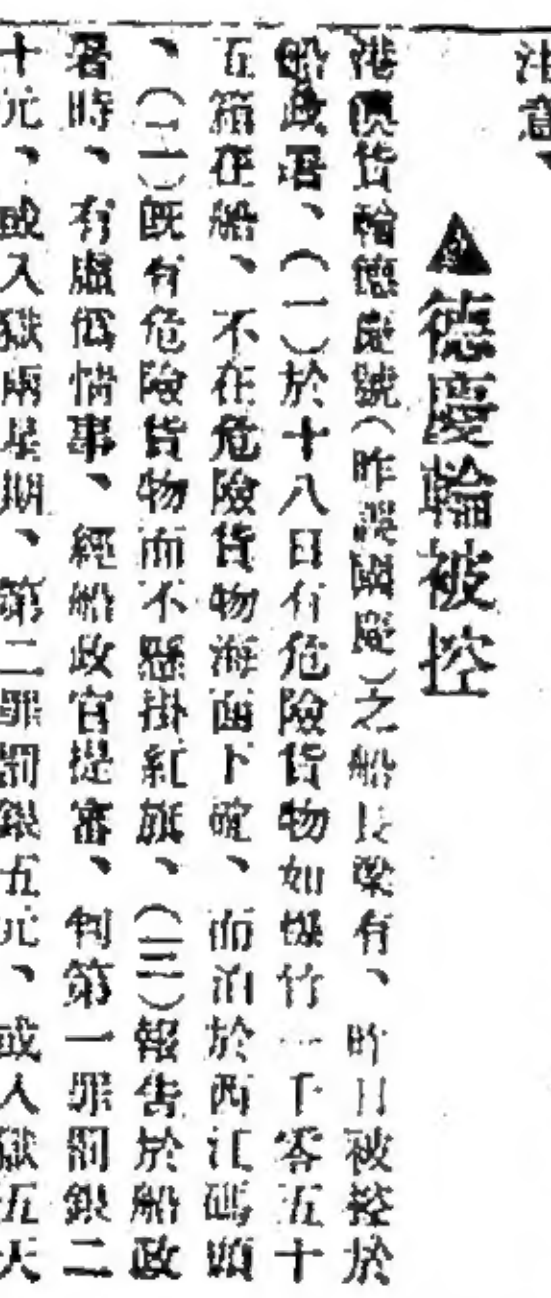 注意、
▲德慶輪被控
港澳貨輪德慶號(昨誤國慶)之船長梁有、昨日被控於
船政署、(一)於十八日有危險貨物如爆竹一千零五十
五箱在船、不在危險貨物海面下碇、而泊於西江碼頭
、(二)既有危險貨物而不懸掛紅旗、(三)報告於船政
署時、有虛偽情事、經船政官提審、判第一罪罰銀二
十元、或入獄兩星期、第二罪罰銀五元、或入獄五天